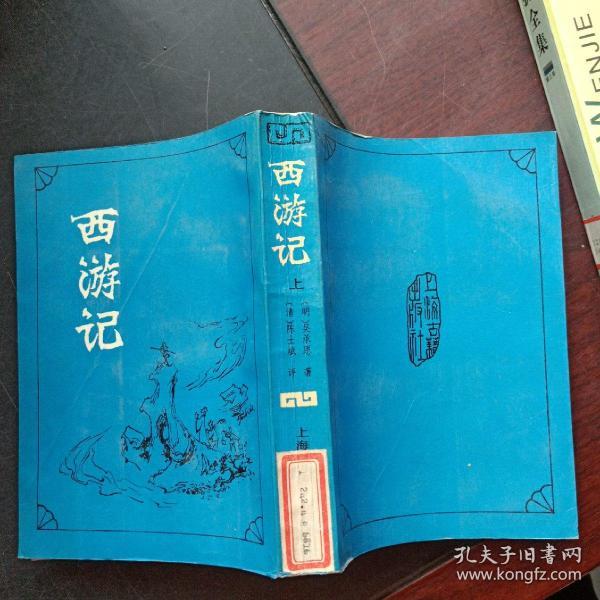 西游记
西游记
上
〔明〕吴承恩 著
〔清〕陈士斌 评
上海
上海古籍出版社
全集
WENJIE
孔夫子旧书网
www.kongfz.com